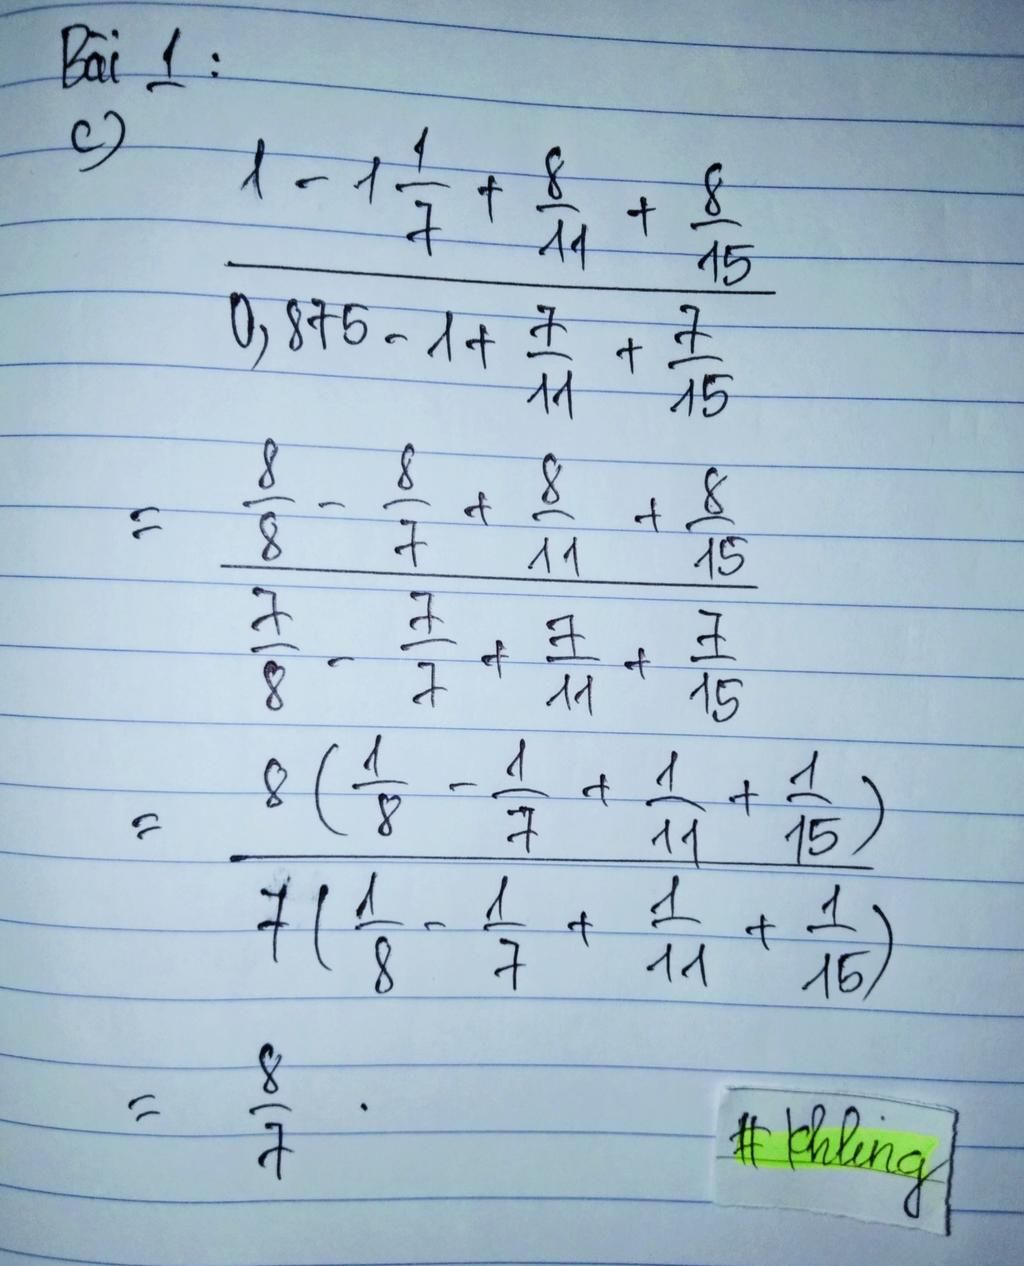 Bài 1 :
c)
1 - 1 1/7 + 8/11 + 8/15
0,875 - 1 + 7/11 + 7/15
= 8/8 - 8/7 + 8/11 + 8/15
7/8 - 7/7 + 7/11 + 7/15
= 8 ( 1/8 - 1/7 + 1/11 + 1/15 )
7 ( 1/8 - 1/7 + 1/11 + 1/15 )
= 8/7 .
# khling